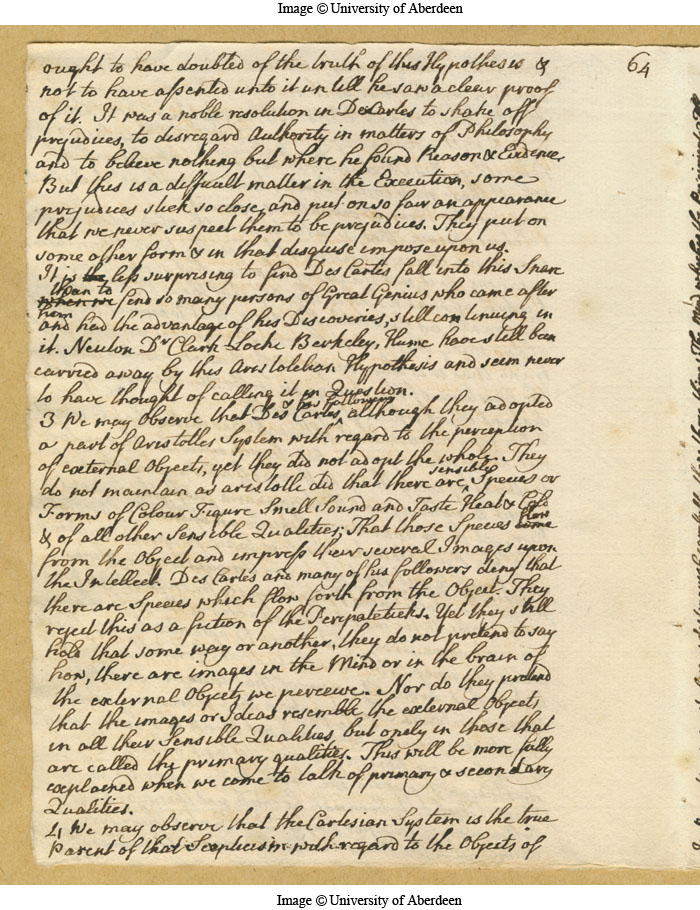 Image © University of Aberdeen
64
ought to have doubted of the truth of this Hypothesis &
not to have assented unto it untill he saw a clear proof
of it. It was a noble resolution in DesCartes to shake off
prejudices, to disregard Authority in matters of Philosophy
and to believe nothing but where he found Reason & Evidence
But this is a difficult matter in the Execution, some
prejudices stick so close, and put on so fair an appearance
that we never suspect them to be prejudices. They put on
some other form & in that disguise impose upon us.
It is less surprising to find Des Cartes fall into this Snare
than to
when we find so many persons of Great Genius who came after
him
and had the advantage of his Discoveries, still continuing in
it. Newton Dr Clark Locke Berkeley, Hume have still been
carried away by this Aristotelian Hypothesis and seem never
to have thought of calling it in Question.
& his followers
3 We may observe that Des Cartes, although they adopted
a part of Aristotles System with regard to the perception
of external Objects, yet they did not adopt the whole. They
sensible
do not maintain as aristotle did that there are Species or
Forms of Colour Figure Smell Sound and Taste Heat & Cold
& of all other Sensible Qualities; That those Species come
flow
from the Object and impress their several Images upon
the Intellect. Des Cartes and many of his followers deny that
there are Species which flow forth from the Object. They
reject this as a fiction of the Peripateticks. Yet they still
hold that some way or another, they do not pretend to say
how, there are images in the Mind or in the brain of
the external Objects we perceive. Nor do they pretend
that the images or Ideas resemble the external Objects
in all their Sensible Qualities, but onely in those that
are called the primary qualities. This will be more fully
explained when we come to talk of primary & secondary
Qualities.
4 We may observe that the Cartesian System is the true
Parent of that Scepticism with regard to the Objects of
Image © University of Aberdeen